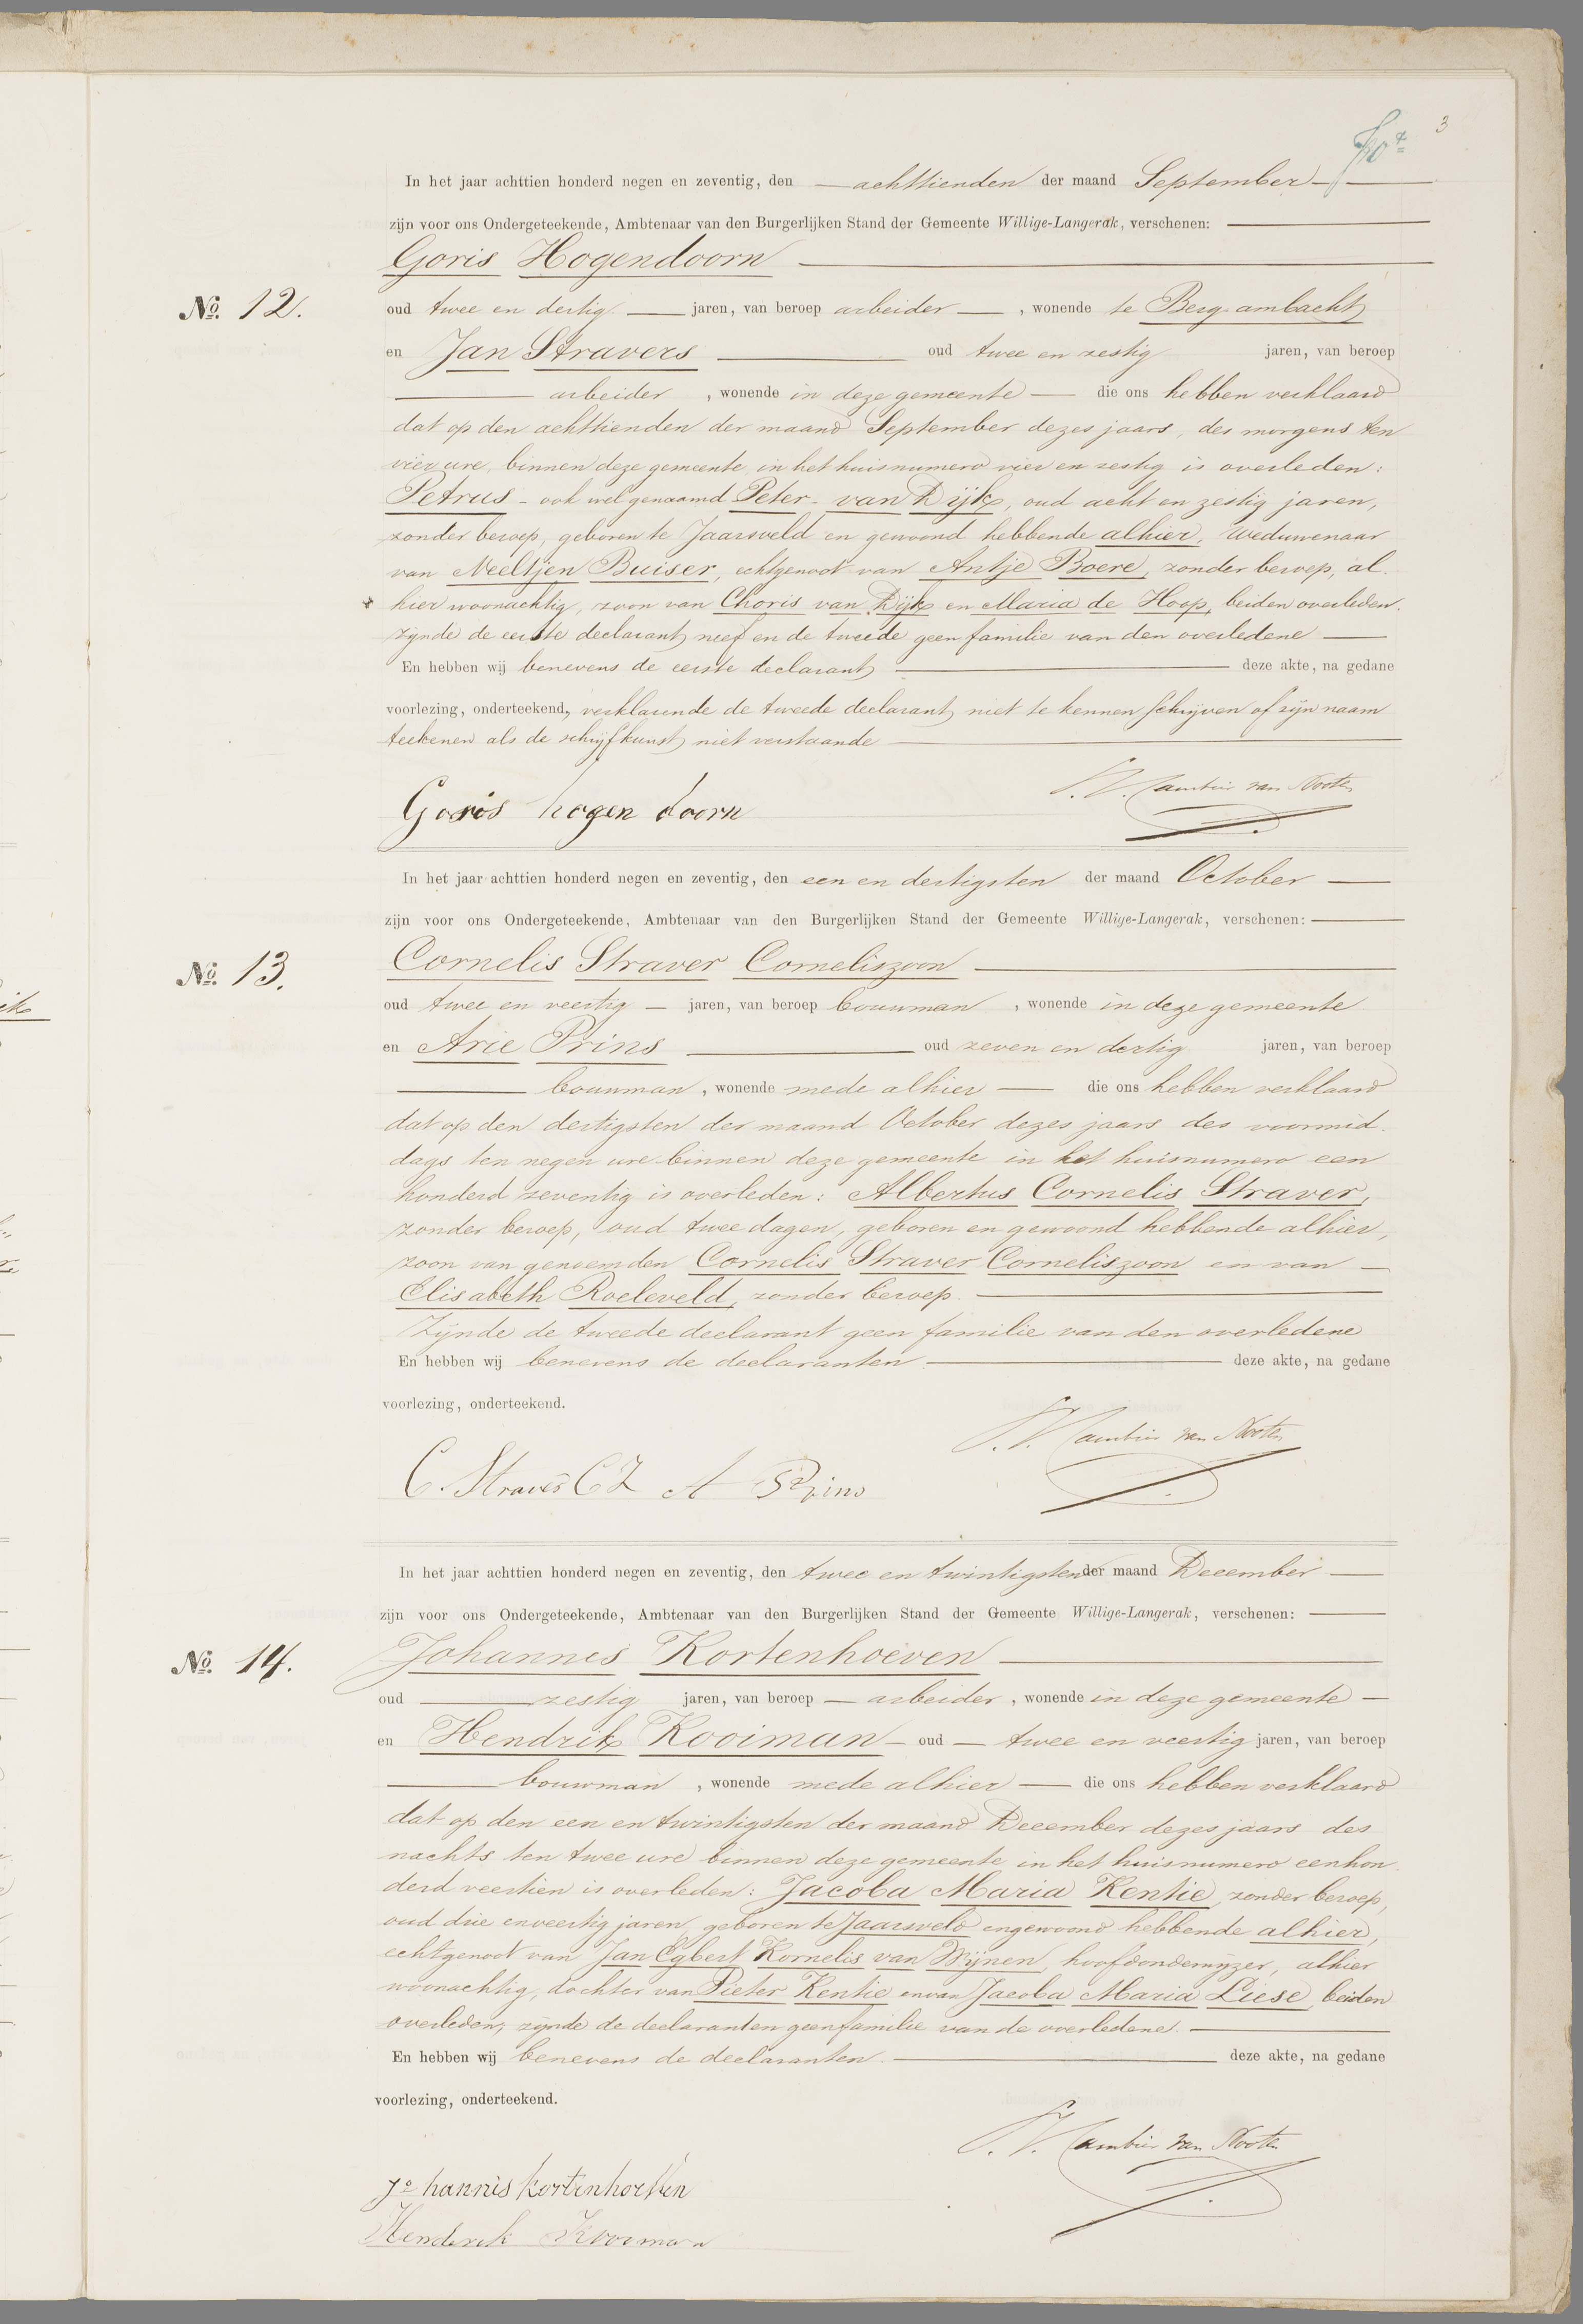 3
In het jaar achttien honderd negen en zeventig, den achttienden der maand September
zijn voor ons Ondergeteekende, Ambtenaar van den Burgerlijken Stand der Gemeente Willige-Langerak, verschenen:
Goris Hogendoorn
No. 12.
oud twee en dertig jaren, van beroep arbeider, wonende te Berg ambacht
en Jan Stravers oud twee en zestig jaren, van beroep
arbeider, wonende in deze gemeente die ons hebben verklaard
dat op den achttienden der maand September dezes jaars, des morgens ten
vier ure, binnen deze gemeente in het huisnumero vier en zestig is overleden:
Petrus - ook wel genaamd Peter - van Dijk, oud acht en zestig jaren,
zonder beroep, geboren te Jaarsveld en gewoond hebbende alhier, Weduwenaar
van Neeltjen Buiser, echtgenoot van Antje Boere, zonder beroep, al
hier woonachtig, zoon van Choris van Dijk en Maria de Hoop, beiden overleden.
zijnde de eerste declarant neef en de tweede geen familie van den overledene
En hebben wij benevens de eerste declarant deze akte, na gedane
voorlezing, onderteekend, verklarende de tweede declarant niet te kennen schrijven of zijn naam
teekenen als de schrijfkunst niet verstaande
Goris hogen doorn
Cambier van Nooten
In het jaar achttien honderd negen en zeventig, den een en dertigsten der maand October
zijn voor ons Ondergeteekende, Ambtenaar van den Burgerlijken Stand der Gemeente Willige-Langerak, verschenen:
Cornelis Straver Corneliszoon
No. 13.
oud twee en veertig jaren, van beroep bouwman, wonende in deze gemeente
en Arie Prins oud zeven en dertig jaren, van beroep
bouwman, wonende mede alhier die ons hebben verklaard
dat op den dertigsten der maand October dezes jaars des voormid
dags ten negen ure binnen deze gemeente in het huisnumero een
honderd zeventig is overleden: Albertus Cornelis Straver,
zonder beroep, oud twee dagen, geboren en gewoond hebbende alhier,
zoon van genoemden Cornelis Straver Corneliszoon en van
Elisabeth Roeleveld, zonder beroep.
Zijnde de tweede declarant geen familie van den overledene
En hebben wij benevens de declaranten deze akte, na gedane
voorlezing, onderteekend.
Cambier van Nooten
C. Straver CZ A Prins
In het jaar achttien honderd negen en zeventig, den twee en twintigsten der maand December
zijn voor ons Ondergeteekende, Ambtenaar van den Burgerlijken Stand der Gemeente Willige-Langerak, verschenen:
Johannes Kortenhoeven
No. 14.
oud zestig jaren, van beroep arbeider, wonende in deze gemeente
en Hendrik Kooiman oud twee en veertig jaren, van beroep
bouwman, wonende mede alhier die ons hebben verklaard
dat op den een en twintigsten der maand December dezes jaars des
nachts ten twee ure binnen deze gemeente in het huisnumero eenhon
derd veertien is overleden: Jacoba Maria Kentie, zonder beroep,
oud drie en veertig jaren, geboren te Jaarsveld en gewoond hebbende alhier,
echtgenoot van Jan Egbert Kornelis van Wijnen, hoofdonderwijzer, alhier
woonachtig, dochter van Pieter Kentie en van Jacoba Maria Liese, beiden
overleden, zijnde de declaranten geen familie van de overledene.
En hebben wij benevens de declaranten. deze akte, na gedane
voorlezing, onderteekend.
Cambier van Nooten
Jo hannis kortenhoeven
Henderik Kooiman